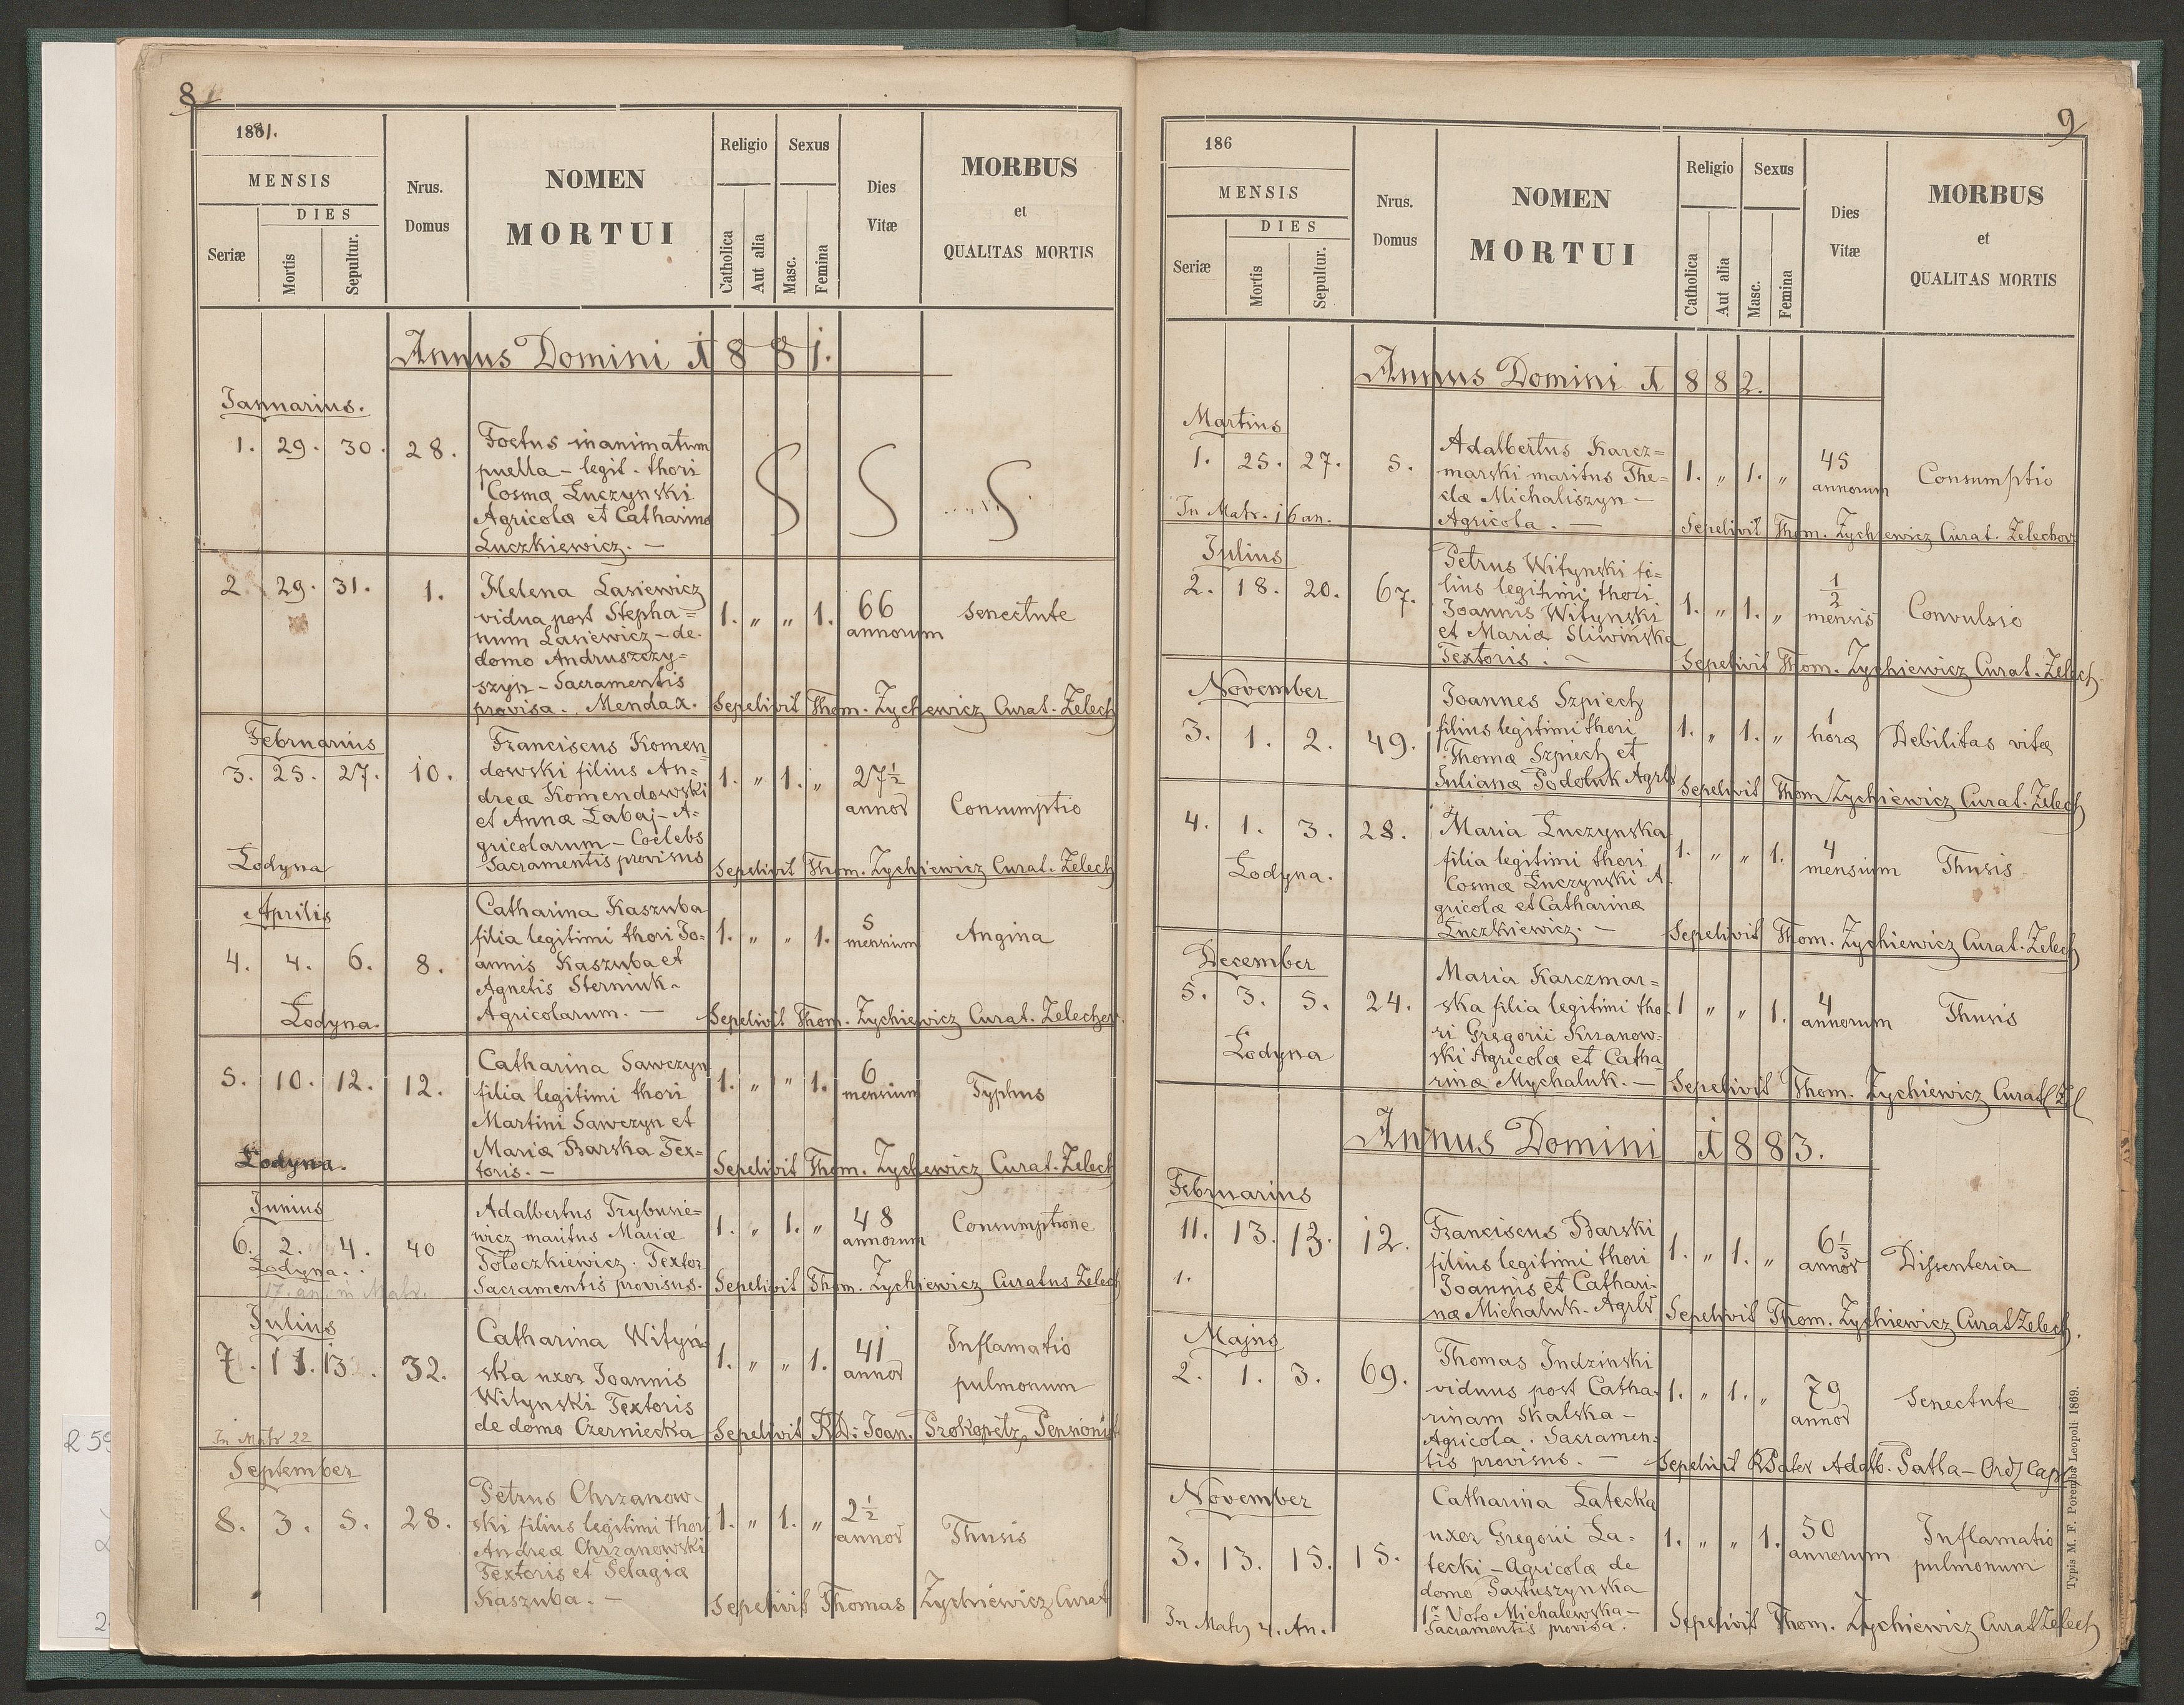 8
1881.
MENSIS
DIES
Seriæ
Mortis
Sepultur.
Nrus.
Domus
NOMEN
MORTUI
Religio
Sexus
Catholica
Aut alia
Masc.
Femina
Dies
Vitæ
MORBUS
et
QUALITAS MORTIS
Annus Domini 1881.
Januarius.
1. 29. 30. 28.
Foetus inanimatum
puella – legit. thori
Cosmæ Łuczynski
Agricolæ et Catharinæ
Łuczkiewicz. –
2 29. 31. 1.
Helena Lasiewicz
vidua post Stepha=
num Lasiewicz – de
domo Andruszczy=
szyn – Sacramentis
provisa. Mendax.
1. " " 1. 66 annorum
Senectute
Sepelivit Thom. Zychiewicz Curat. Zelech
Februarius
3. 25. 27. 10.
Franciscus Komen
dowski filius An=
dreæ Komendowski
et Annæ Łabaj – A=
gricolarum – Coelebs
Sacramentis provisus
1. " 1. " 27½ annor
Consumptio
Łodyna
Sepelivit Thom. Zychiewicz Curat. Zelech
Aprilis
4. 4. 6. 8.
Catharina Kaszuba
filia legitimi thori Jo=
annis Kaszuba et
Agnetis Sterniuk –
Agricolarum. –
1. " " 1. 5 mensium
Angina
Łodyna.
Sepelivit Thom. Zychiewicz Curat. Zelechov.
5. 10. 12. 12.
Catharina Sawczyn
filia legitimi thori
Martini Sawczyn et
Mariæ Barska Tex=
toris. –
1. " " 1. 6 mensium
Typhus
Łodyna.
Sepelivit Thom. Zychiewicz Curat. Zelech
Junius
6. 2. 4. 40
Adalbertus Trybusie=
wicz maritus Mariæ
Tołoczkiewicz. Textor
Sacramentis provisus.
1. " 1. " 48 annorum
Consumptione
Łodyna.
17. an. in Matr.
Sepelivit Thom. Zychiewicz Curatus Zelech
Julius
7. 11. 13. 32.
Catharina Wityń=
ska uxor Joannis
Witynski Textoris
de domo Czerniecka
1. " " 1. 41 annor
Inflamatio
pulmonum
In Matr 22
Sepelivit RD: Joan. Prokopetz Pensionist
September
8. 3. 5. 28.
Petrus Chrzanow-
ski filius legitimi thori
Andreæ Chrzanowski
Textoris et Pelagiæ
Kaszuba. –
1. " 1. " 2½ annor
Thusis
Sepelivit Thomas Zychiewicz Curat
9
186
MENSIS
DIES
Seriæ
Mortis
Sepultur.
Nrus.
Domus
NOMEN
MORTUI
Religio
Sexus
Catholica
Aut alia
Masc.
Femina
Dies
Vitæ
MORBUS
et
QUALITAS MORTIS
Annus Domini 1882.
Martius
1. 25. 27. 5.
Adalbertus Karcz=
marski maritus The=
clæ Michaliszyn –
Agricola. –
1. " 1. " 45 annorum
Consumptio
In Matr. 16 an.
Sepelivit Thom. Zychiewicz Curat. Zelechov
Julius
2. 18. 20. 67.
Petrus Witynski fi=
lius legitimi thori
Joannis Witynski
et Mariæ Sliwińska
Textoris. –
1. " 1. " ½ mensis
Convulsio
Sepelivit Thom. Zychiewicz Curat. Zelech.
November
3. 1. 2. 49.
Joannes Szpiech
filius legitimi thori
Thomæ Szpiech et
Julianæ Podoluk Agrlr
1. " 1. " 1 hora
Debilitas vitæ
Sepelivit Thom Zychiewicz Curat. Zelech
4. 1. 3. 28.
Maria Łuczynska
filia legitimi thori
Cosmæ Łuczynski A
gricolæ et Catharinæ
Łuczkiewicz. –
1. " " 1. 4 mensium
Thusis
Łodyna.
Sepelivit Thom. Zychiewicz Curat. Zelech
December
5. 3. 5. 24.
Maria Karczmar=
ska filia legitimi tho
ri Gregorii Krzanow=
ski Agricolæ et Catha
rinæ Mychaluk. –
1 " " 1. 4 annorum
Thusis
Łodyna
Sepelivit Thom. Zychiewicz Curat Zel
Annus Domini 1883.
Februarius
11. 13. 13. 12.
1.
Franciscus Barski
filius legitimi thori
Joannis et Cathari-
næ Michaluk. Agrlr
1. " 1. " 6⅓ annor
Dissenteria
Sepelivit Thom. Zychiewicz Curat Zelech.
Majus
2. 1. 3. 69.
Thomas Indzinski
viduus post Catha-
rinam Skalska –
Agricola. Sacramen=
tis provisus. –
1. " 1. " 79 annor
Senectute
Sepelivit RPater Adalb. Satła – Ord Cap
November
3. 13. 15. 15.
Catharina Łatecka
uxor Gregorii Ła-
tecki – Agricolæ de
domo Pastuszynska
1ᵐ Voto Michalewska –
Sacramentis provisa.
1. " " 1. 50 annorum
Inflamatio
pulmonum
In Matr 4. An.
Sepelivit Thom. Zychiewicz Curat Zelech
Typis M. F. Poremba Leopoli 1869.